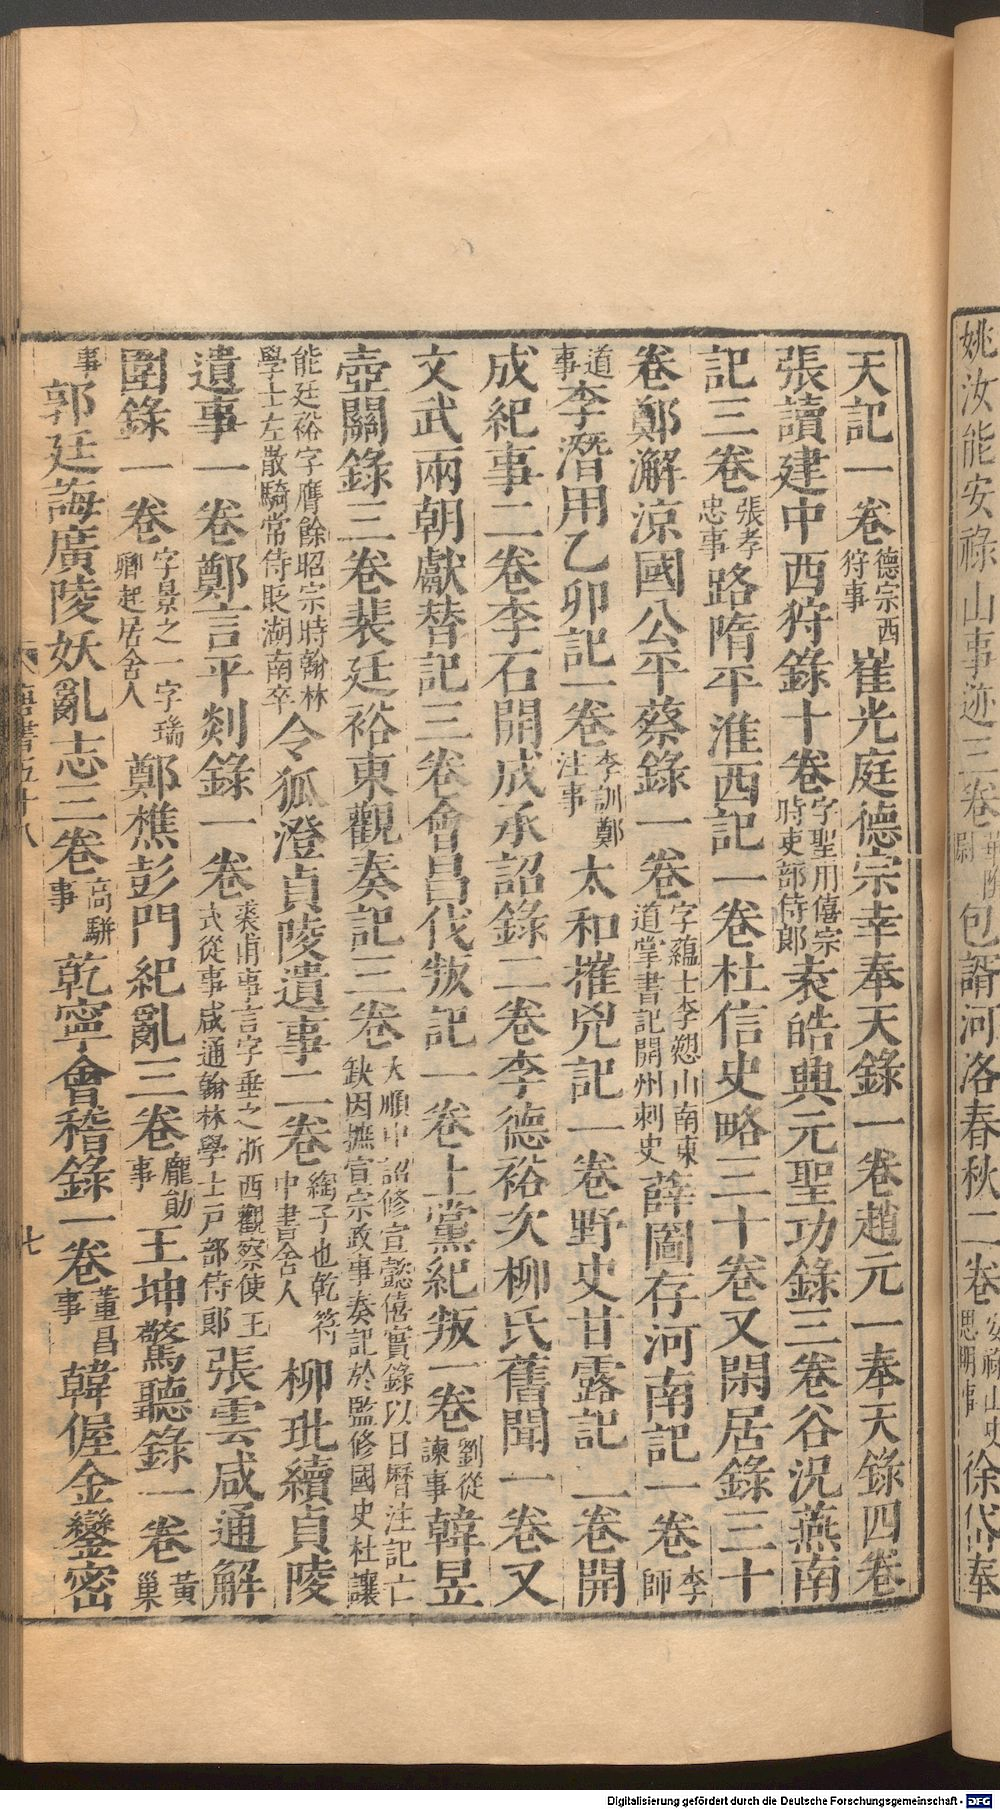 姚汝能安祿山事迹三卷華陰尉包諝河洛春秋二卷安祿山史思明事徐岱奉
天記一卷德宗西狩事崔光庭德宗幸奉天錄一卷趙元一奉天錄四卷
張讀建中西狩錄十卷字聖用僖宗時吏部侍郎袁皓興元聖功錄三卷谷況燕南
記三卷張孝忠事路隋平淮西記一卷杜信史略三十卷又閑居錄三十
卷鄭澥涼國公平蔡錄一卷字蘊士李愬山南東道掌書記開州刺史薛圖存河南記一卷李師
道事李潛用乙卯記一卷李訓鄭注事太和摧兇記一卷野史甘露記二卷開
成紀事二卷李石開成承詔錄二卷李德裕次柳氏舊聞一卷又
文武兩朝獻替記三卷會昌伐叛記一卷上黨紀叛一卷劉從諫事韓昱
壺關錄三卷裴廷裕東觀奏記三卷大順中詔修宣懿僖實錄以日曆注記亡缺因摭宣宗政事奏記於監修國史杜讓
能廷裕字膺餘昭宗時翰林學士左散騎常侍貶湖南卒令狐澄貞陵遺事二卷綯子也乾符中書舍人柳玭續貞陵
遺事一卷鄭言平剡錄一卷裘甫事言字垂之浙西觀察使王式從事咸通翰林學士戶部侍郎張雲咸通解
圍錄一卷字景之一字瑞卿起居舍人鄭樵彭門紀亂三卷龐勛事王坤驚聽錄一卷黃巢
事郭廷誨廣陵妖亂志三卷高駢事乾寧會稽錄一卷董昌事韓偓金鑾密
唐書五十八
七
Digitalisierung gefördert durch die Deutsche Forschungsgemeinschaft - DFG